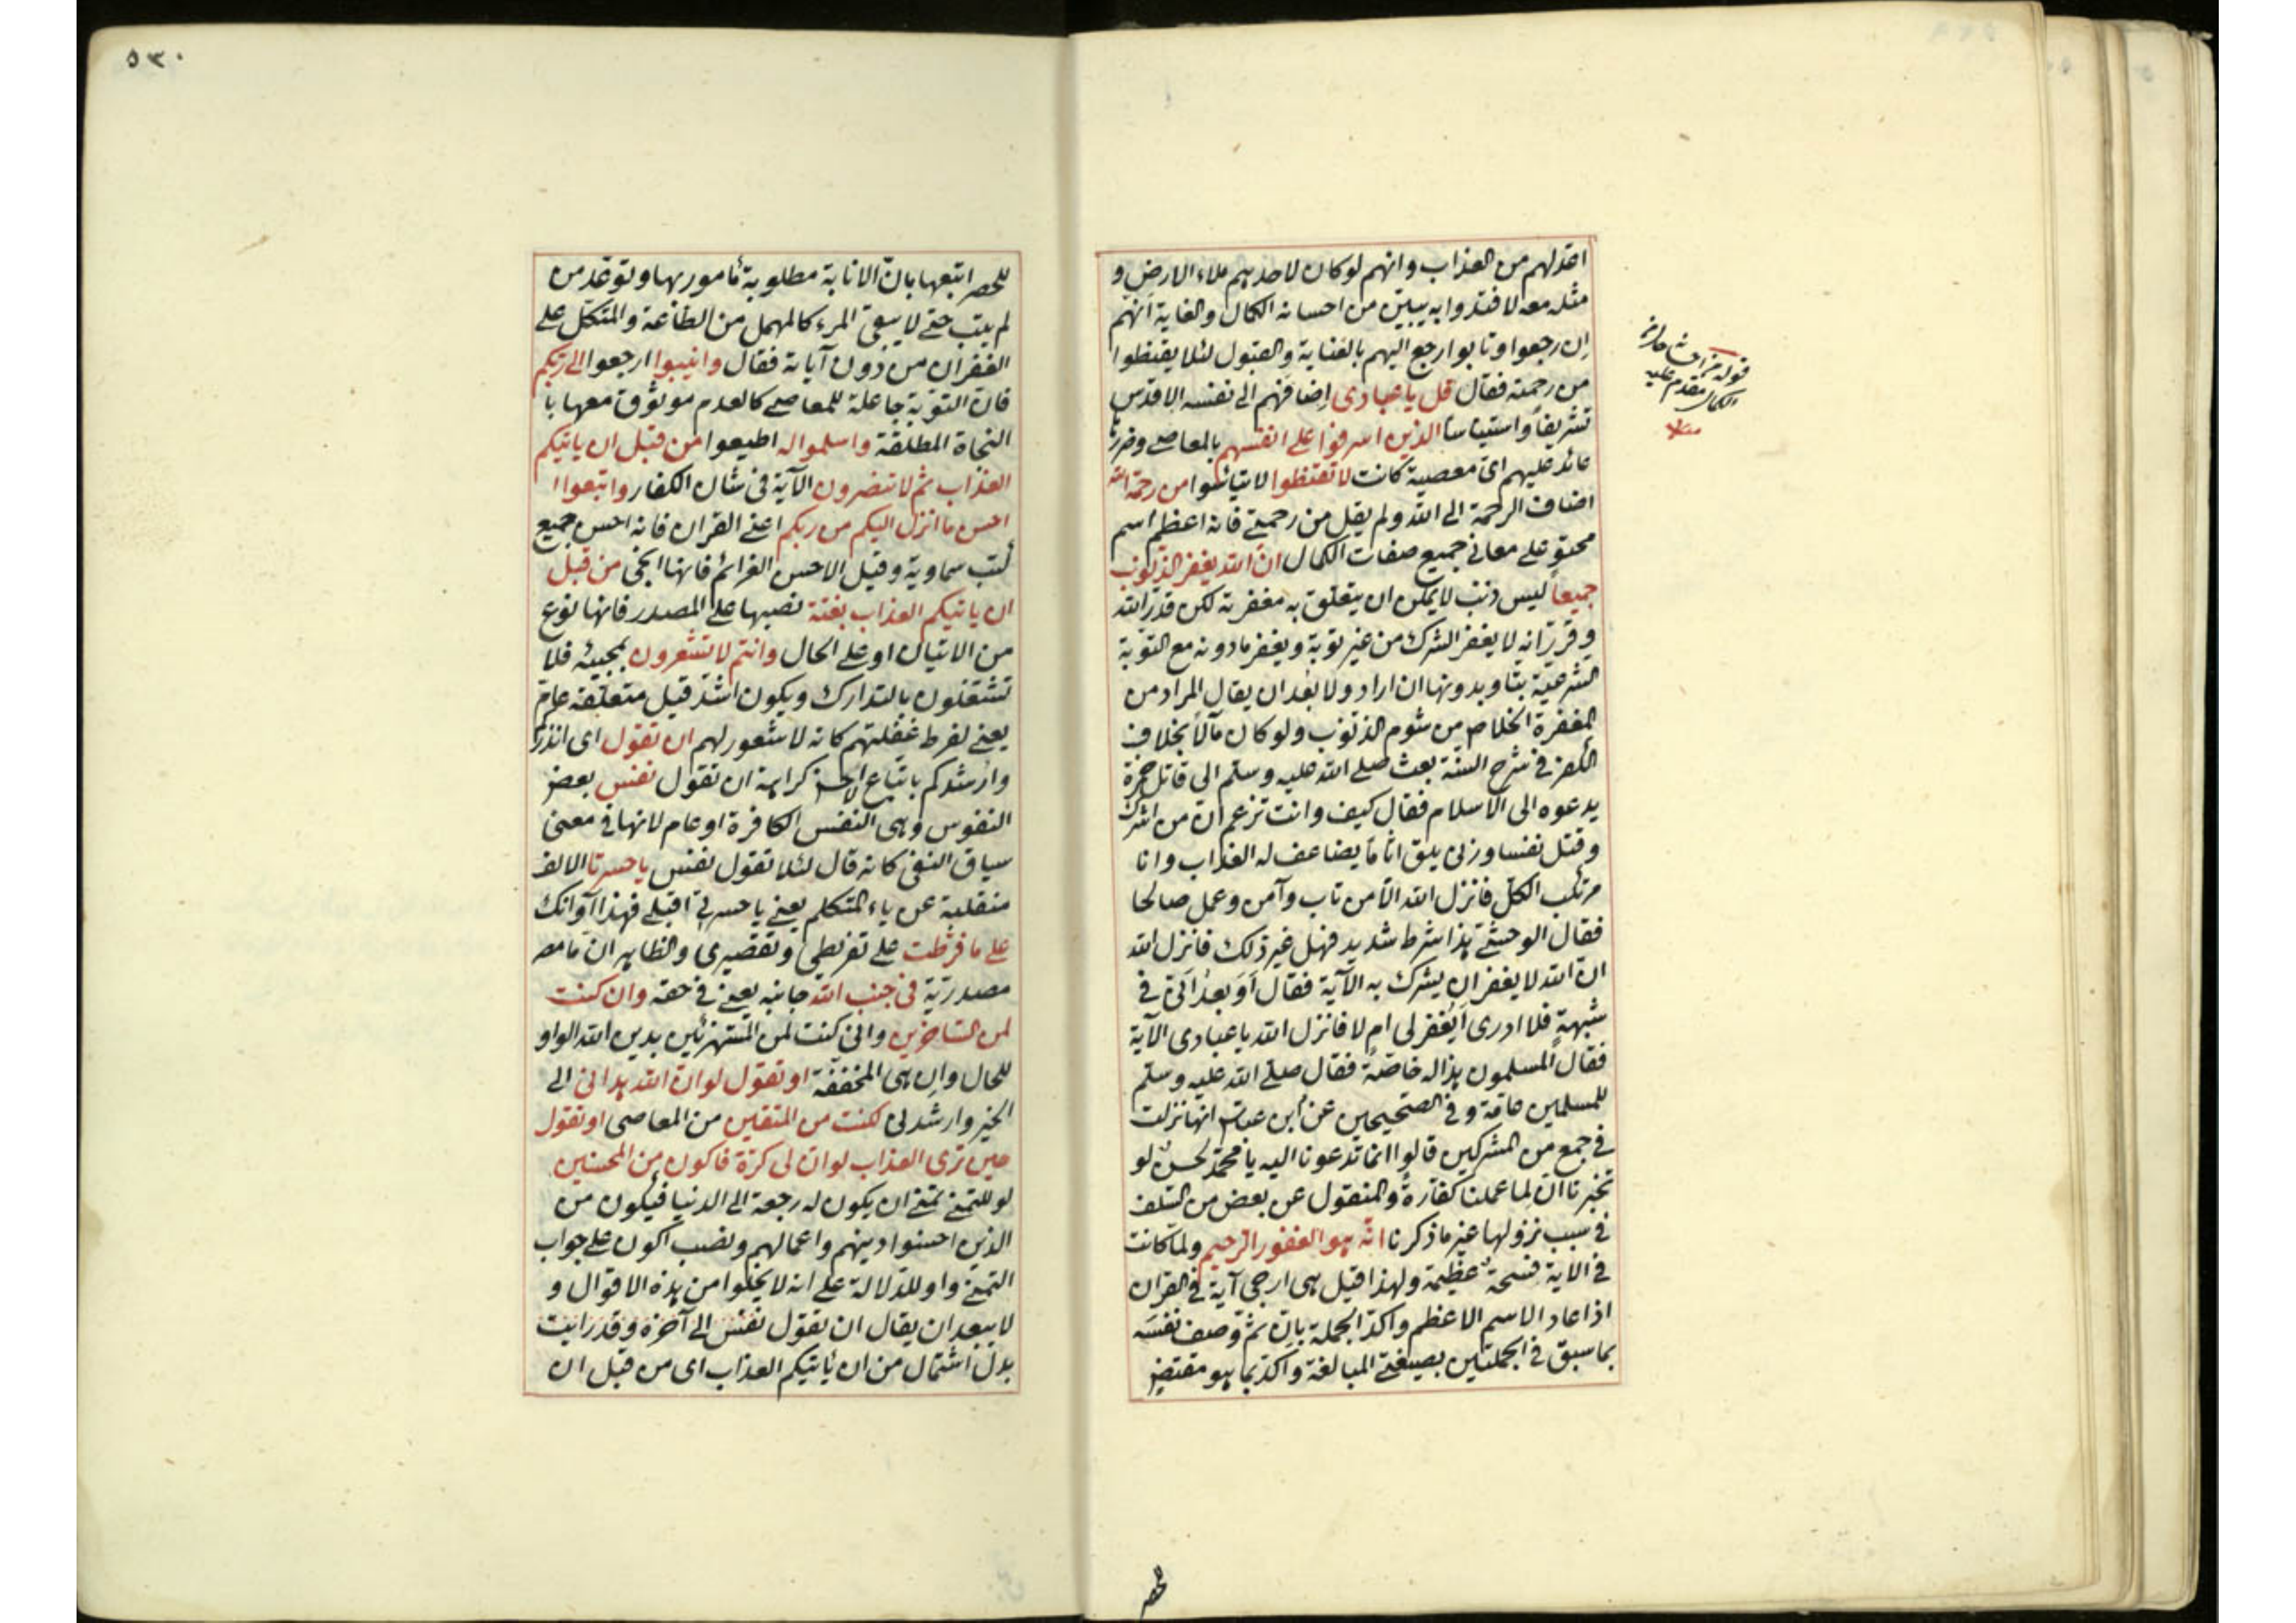 اعد لهم من العذاب وانهم لو كان لاحدهم ملاء الارض و
مثله معه لافتدوا به يبين من احسانه الكمال والغاية انهم
ان رجعوا وتابوا رجع اليهم بالعناية والقبول لئلا يقنطوا
من رحمته فقال قل يا عبادى اضافهم الى نفسه الاقدس
تشريفاً واستيناسا الذين اسرفوا على انفسهم بالمعاصى وضررها
عائد عليهم اى معصية كانت لا تقنطوا لا تيأسوا من رحمة الله
اضاف الرحمة الى الله ولم يقل من رحمتى فانه اعظم اسم
محتو على معانى جميع صفات الكمال ان الله يغفر الذنوب
جميعاً ليس ذنب لا يمكن ان يتعلق به مغفرته لكن قدر الله
وقرر انه لا يغفر الشرك من غير توبة ويغفر ما دونه مع التوبة
الشرعية بتا وبدونها ان اراد ولا بعد ان يقال المراد من
المغفرة الخلاص من شوم الذنوب ولو كان مآلاً بخلاف
الكفر فى شرح السنة بعث صلى الله عليه وسلم الى قاتل حمزة
يدعوه الى الاسلام فقال كيف وانت تزعم ان من اشرك
وقتل نفسا وزنى يلق اثاما يضاعف له العذاب وانا
مرتكب الكل فانزل الله الا من تاب وآمن وعمل صالحا
فقال الوحشى هذا شرط شديد فهل غير ذلك فانزل الله
ان الله لا يغفر ان يشرك به الآية فقال اَوَ بعدُ انى فى
شبهة فلا ادرى اَيُغفر لى ام لا فانزل الله يا عبادى الآية
فقال المسلمون هذا له خاصة فقال صلى الله عليه وسلم
للمسلمين عامة وفى الصحيحين عن ابن عباس انها نزلت
فى جمع من المشركين قالوا انما تدعونا اليه يا محمد لحسن لو
تخبرنا ان لما عملنا كفارة والمنقول عن بعض من السلف
فى سبب نزولها غير ما ذكرنا انه هو الغفور الرحيم ولما كانت
فى الاية فسحة عظيمة ولهذا قيل هى ارجى آية فى القران
اذا عاد الاسم الاعظم واكد الجملة بان ثم وصف نفسه
بما سبق فى الجملتين بصيغتى المبالغة واكد بما هو مقتض
قوله
مقدم عليه
للحصر
٥٣٠
للحصر اتبعها بان الانابة مطلوبة مأمور بها وتوعد من
لم يتب حتى لا يبقى المرء كالمهمل من الطاعة والمتكل على
الغفران من دون آيابة فقال وانيبوا ارجعوا الى ربكم
فان التوبة جاعلة للمعاصى كالعدم موثوق معها با
النجاة المطلقة واسلموا له اطيعوا من قبل ان ياتيكم
العذاب ثم لا تنصرون الآية فى شان الكفار واتبعوا ا
احسن ما انزل اليكم من ربكم اعنى القران فانه احسن جميع
كتب سماوية وقيل الاحسن العزائم فانها انجى من قبل
ان ياتيكم العذاب بغتة نصبها على المصدر فانها نوع
من الاتيان او على الحال وانتم لا تشعرون بمجيئه فلا
تشتغلون بالتدارك ويكون اشد قيل متعلقه عام
يعنى لفرط غفلتهم كانه لا شعور لهم ان تقول اى انذركم
وارشدكم باتباع الاحسن كراهة ان تقول نفس بعض
النفوس وهى النفس الكافرة او عام لانها فى معنى
سياق النفى كانه قال لئلا تقول نفس يا حسرتا الالف
منقلبة عن ياء المتكلم يعنى يا حسرتى اقبلى فهذا آوانك
على ما فرطت على تفريطى وتقصيرى والظاهر ان ما مصـ
مصدرية فى جنب الله جانبه يعنى فى حقه وان كنت
لمن الساخرين وانى كنت لمن المستهزئين بدين الله الواو
للحال وان هى المخففة او تقول لو ان الله هدانى الى
الخير وارشدنى لكنت من المتقين من المعاصى او تقول
حين ترى العذاب لو ان لى كرة فاكون من المحسنين
لو للتمنى تمنى ان يكون له رجعة الى الدنيا فيكون من
الذين احسنوا دينهم واعمالهم ونصب اكون على جواب
التمنى واو للدلالة على انه لا يخلوا من هذه الاقوال و
لا يبعد ان يقال ان تقول نفس الى آخره وقد رايت
بدل اشتمال من ان يأتيكم العذاب اى من قبل ان